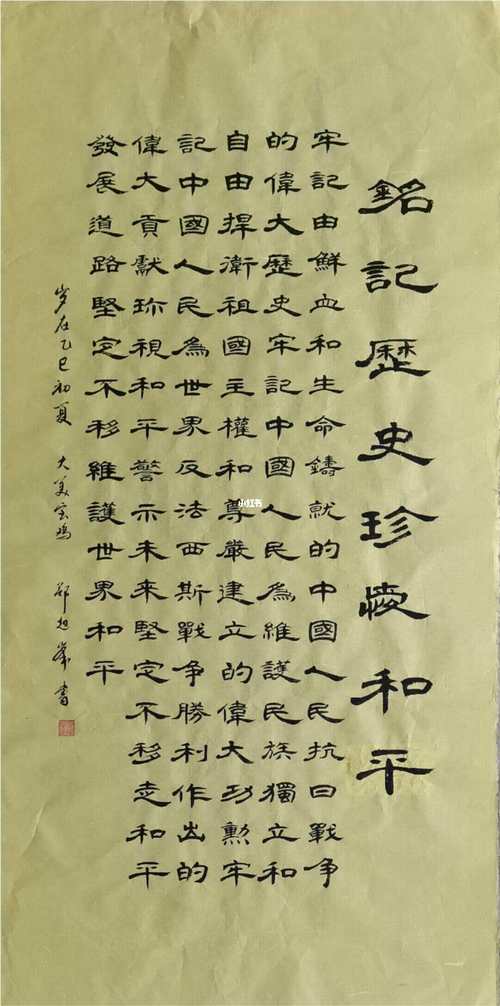 銘記歷史珍愛和平
牢記由鮮血和生命鑄就的中國人民抗日戰争
的偉大歷史牢記中國人民為維護民族獨立和
自由捍衛祖國主權和尊嚴建立的偉大功勳牢
記中國人民為世界反法西斯戰争勝利作出的
偉大貢獻珎視和平警示未來堅定不移走和平
發展道路堅定不移維護世界和平
岁在乙巳初夏 大美宝鸡 旭峯書
小红书